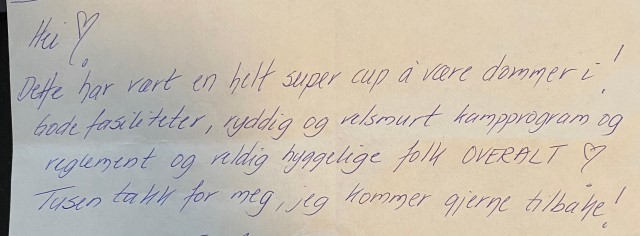 Hei ♡
Dette har vært en helt super cup å være dommer i!
Gode fasiliteter, ryddig og velsmurt kampprogram og
reglement og veldig hyggelige folk OVERALT ♡
Tusen takk for meg, jeg kommer gjerne tilbake!